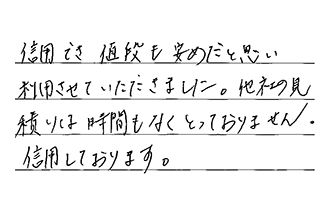 信用でき 値段も安めだと思い
利用させていただきました。他社の見
積りは時間もなくとっておりません。
信用しております。